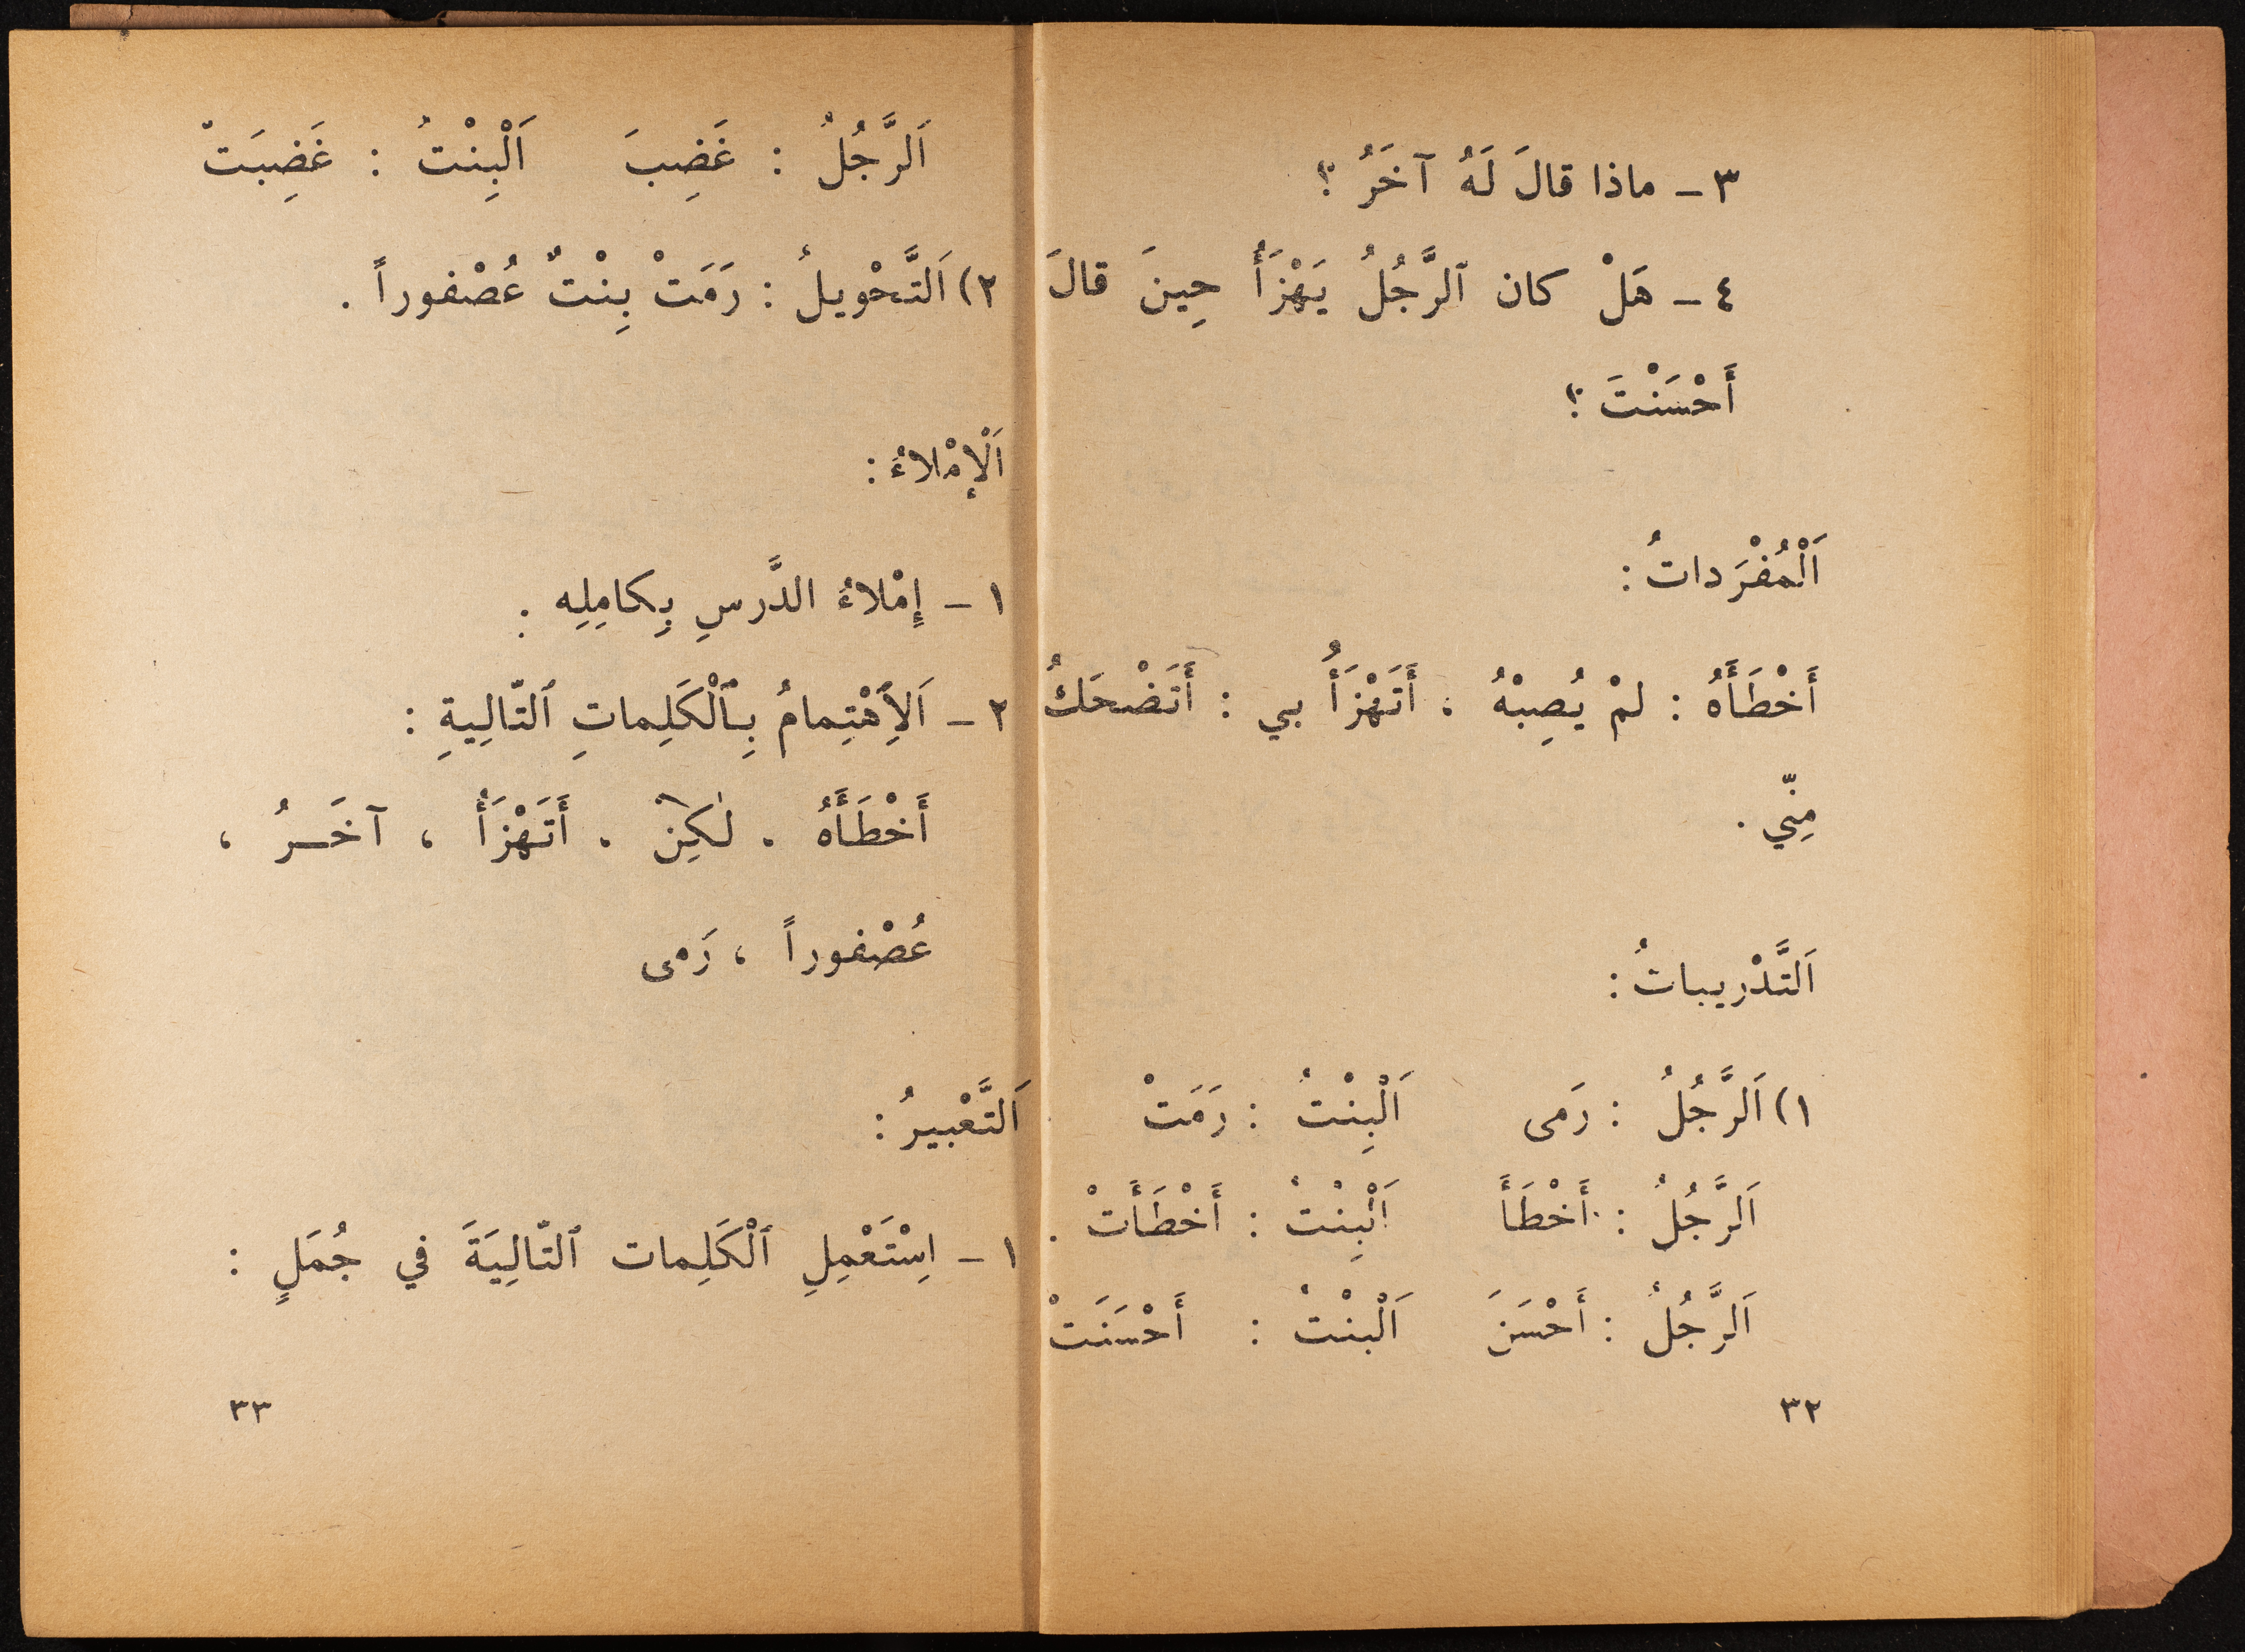 ٣ ـ ماذا قالَ لَهُ آخَرُ ؟
٤ ـ هَلْ كان ٱلرَّجُلُ يَهْزَأُ حِينَ قالَ
أَحْسَنْتَ ؟
اَلْمُفْرَداتُ :
أَخْطَأَهُ : لمْ يُصِبْهُ . أَتَهْزَأُ بي : أَتَضْحَكُ
مِنّي .
اَلتَّدْريباتُ :
١) اَلرَّجُلُ : رَمى اَلْبِنْتُ : رَمَتْ
اَلرَّجُلُ : أَخْطَأَ اَلْبِنْتُ : أَخْطَأَتْ .
اَلرَّجُلُ : أَحْسَنَ اَلْبنْتُ : أَحْسَنَتْ
٣٢
اَلرَّجُلُ : غَضِبَ اَلْبِنْتُ : غَضِبَتْ
٢) اَلتَّحْويلُ : رَمَتْ بِنْتٌ عُصْفوراً .
اَلْإمْلاءُ :
١ ـ إِمْلاءُ الدَّرسِ بِكامِلِه .
٢ ـ اَلِاَهْتِمامُ بِٱلْكَلِماتِ ٱلتّالِيةِ :
أَخْطَأَهُ . لٰكِنْ . أَتَهْزَأُ ، آخَـرُ ،
عُصْفوراً ، رَمى
اَلتَّعْبيرُ :
١ ـ اِسْتَعْمِلِ ٱلْكَلِمات ٱلتّالِيَةَ في جُمَلٍ :
٣٣